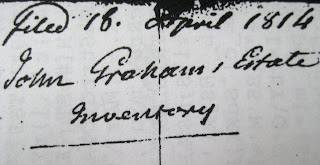 Filed 18. April 1814
John Graham's Estate
Inventory